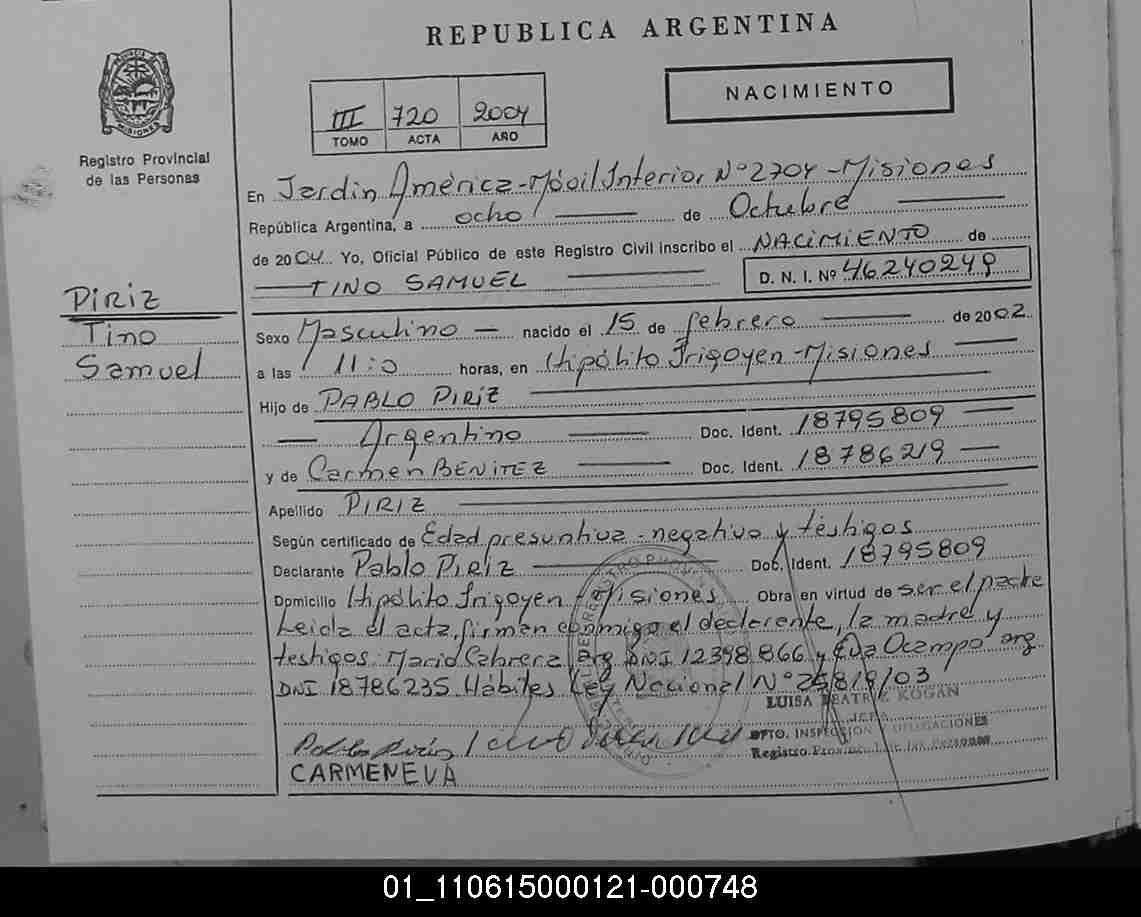 REPUBLICA ARGENTINA
NACIMIENTO
III 720 2004
TOMO ACTA AÑO
PROVINCIA DE MISIONES
Registro Provincial
de las Personas
PIRIZ
Tino
Samuel
En Jardin América-Móvil Interior Nº 2704-Misiones
República Argentina, a ocho de Octubre
de 2004. Yo, Oficial Público de este Registro Civil inscribo el NACIMIENTO de
TINO SAMUEL D. N. I. Nº 46240249
Sexo Masculino nacido el 15 de febrero de 2002
a las 11:0 horas, en Hipólito Irigoyen-Misiones
Hijo de PABLO PIRIZ
Argentino Doc. Ident. 18795809
y de Carmen BENITEZ Doc. Ident. 18786219
Apellido PIRIZ
Según certificado de Edad presuntiva-negativo y testigos
Declarante Pablo PIRIZ Doc. Ident. 18795809
Domicilio Hipólito Irigoyen-Misiones Obra en virtud de ser el padre
Leida el acta, firman conmigo el declarante, la madre y
testigos: Mario Cabrera arg DNI 12398866 y Eva Ocampo arg
DNI 18786235 Hábiles Ley Nacional Nº 25819/03
LUISA BEATRIZ KOGAN
JEFA
DPTO. INSPECCION Y DELEGACIONES
Registro Provincial de las Personas
CARMEN EVA
01_110615000121-000748